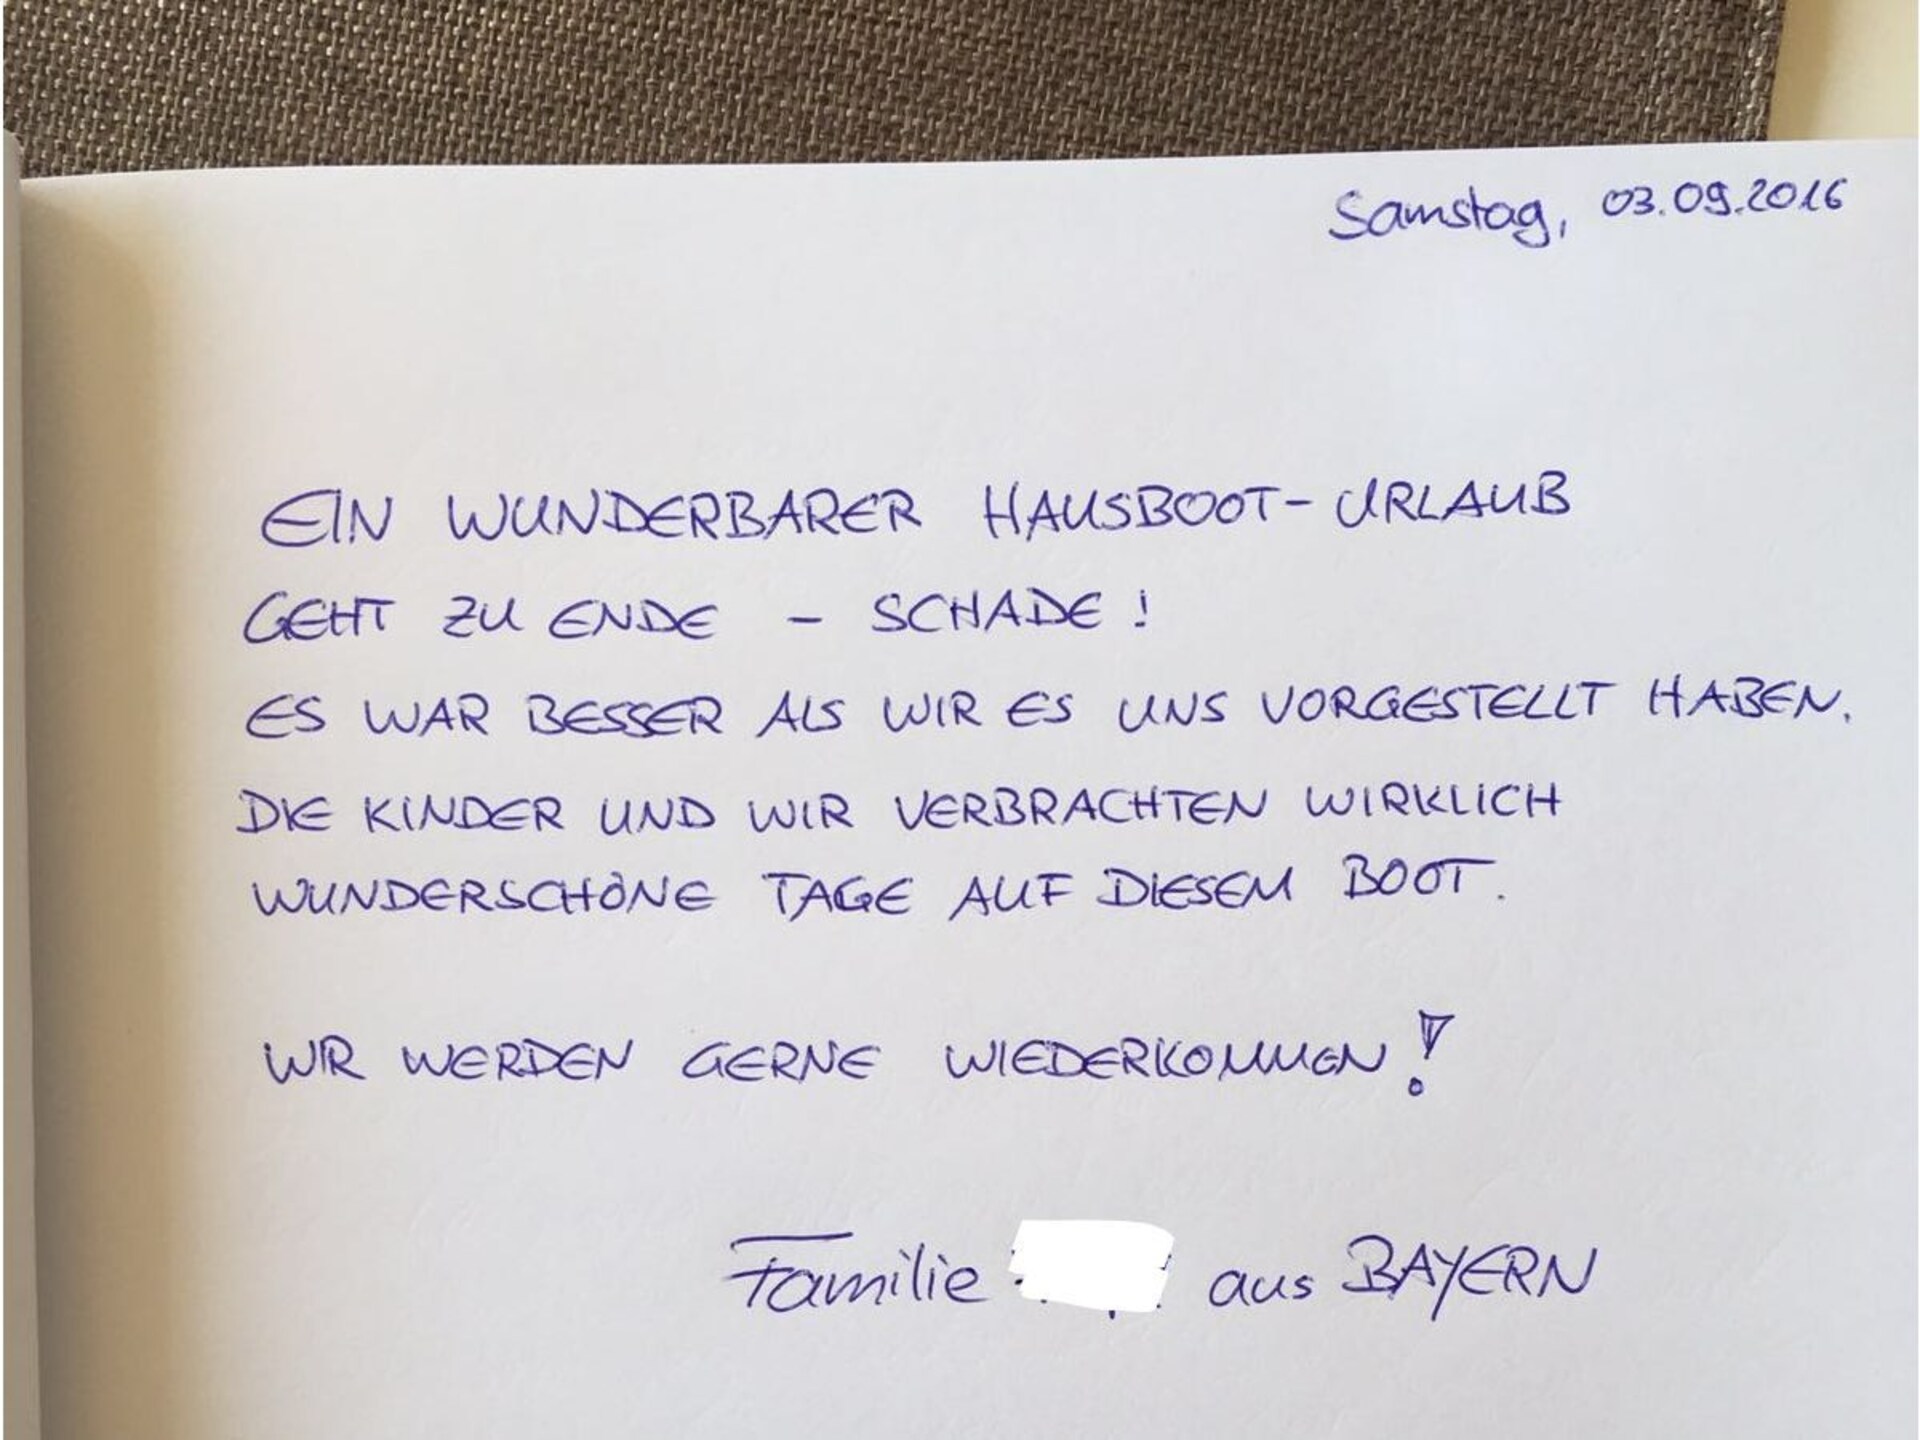 Samstag, 03.09.2016
EIN WUNDERBARER HAUSBOOT-URLAUB
GEHT ZU ENDE - SCHADE!
ES WAR BESSER ALS WIR ES UNS VORGESTELLT HABEN.
DIE KINDER UND WIR VERBRACHTEN WIRKLICH
WUNDERSCHÖNE TAGE AUF DIESEM BOOT.
WIR WERDEN GERNE WIEDERKOMMEN!
Familie aus BAYERN